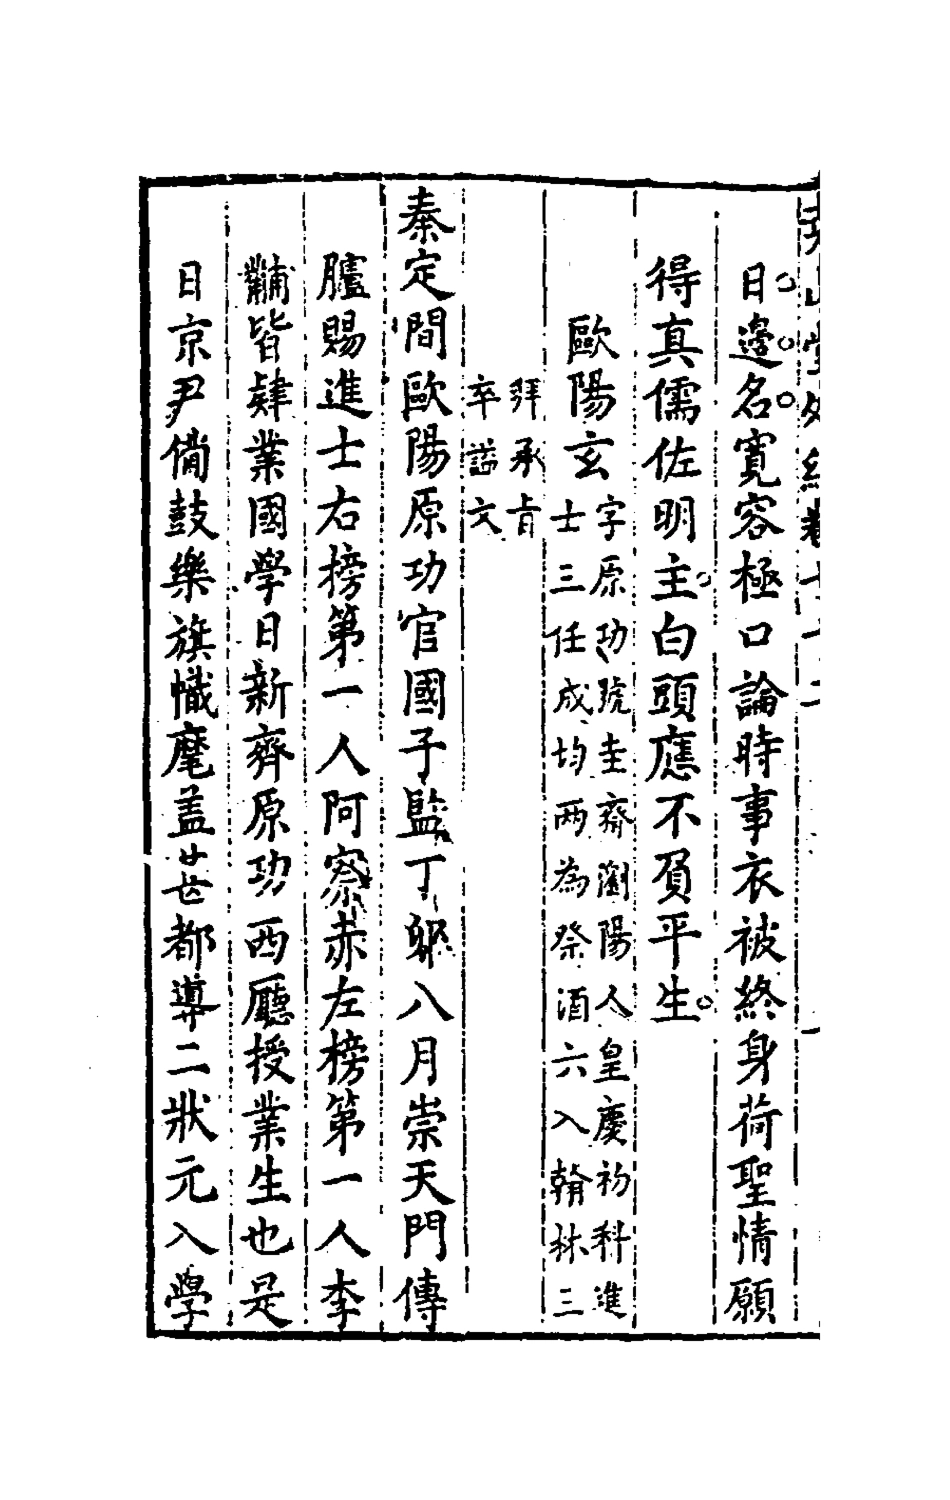 日邊名寬容極口論時事衣被終身荷聖情願
得真儒佐明主白頭應不負平生
歐陽玄
字原功號圭齋瀏陽人皇慶初科進
士三任成均两為祭酒六入翰林三
拜承旨
卒諡文
泰定間歐陽原功官國子監丁卯八月崇天門傳
臚賜進士右榜第一人阿察赤左榜第一人李
黼皆肄業國學日新齊原功西廳授業生也是
日京尹備鼓樂旗幟麾盖甚都導二狀元入學